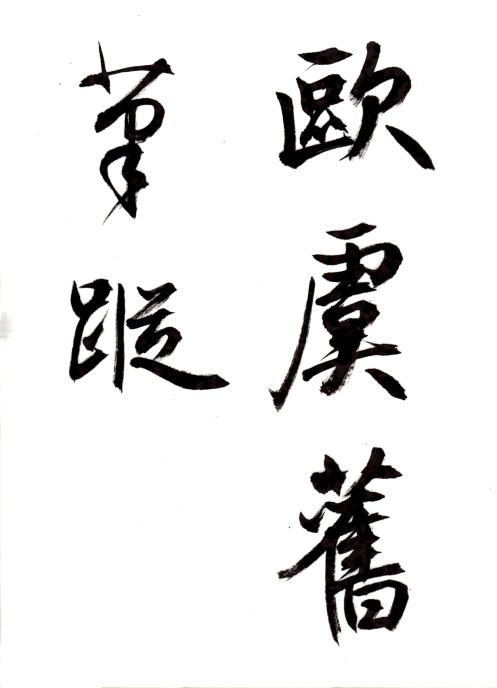 歐虞舊
筆蹤